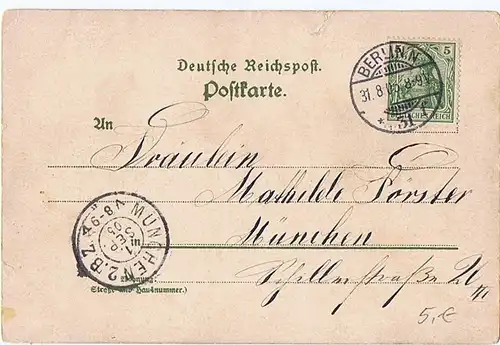 Deutsche Reichspost.
Postkarte.
BERLIN, N.
31.8.05.8-9V.
* 31 f
5
An
Fräulein
Mathilde Förster
München
Schillerstraße
MÜNCHEN 2. B.Z.
V 8-9
1
SEP
05
Straße und Hausnummer.)
5,€